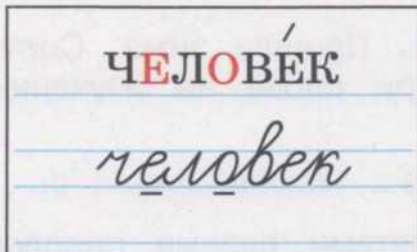 ЧЕЛОВЕ́К
человек